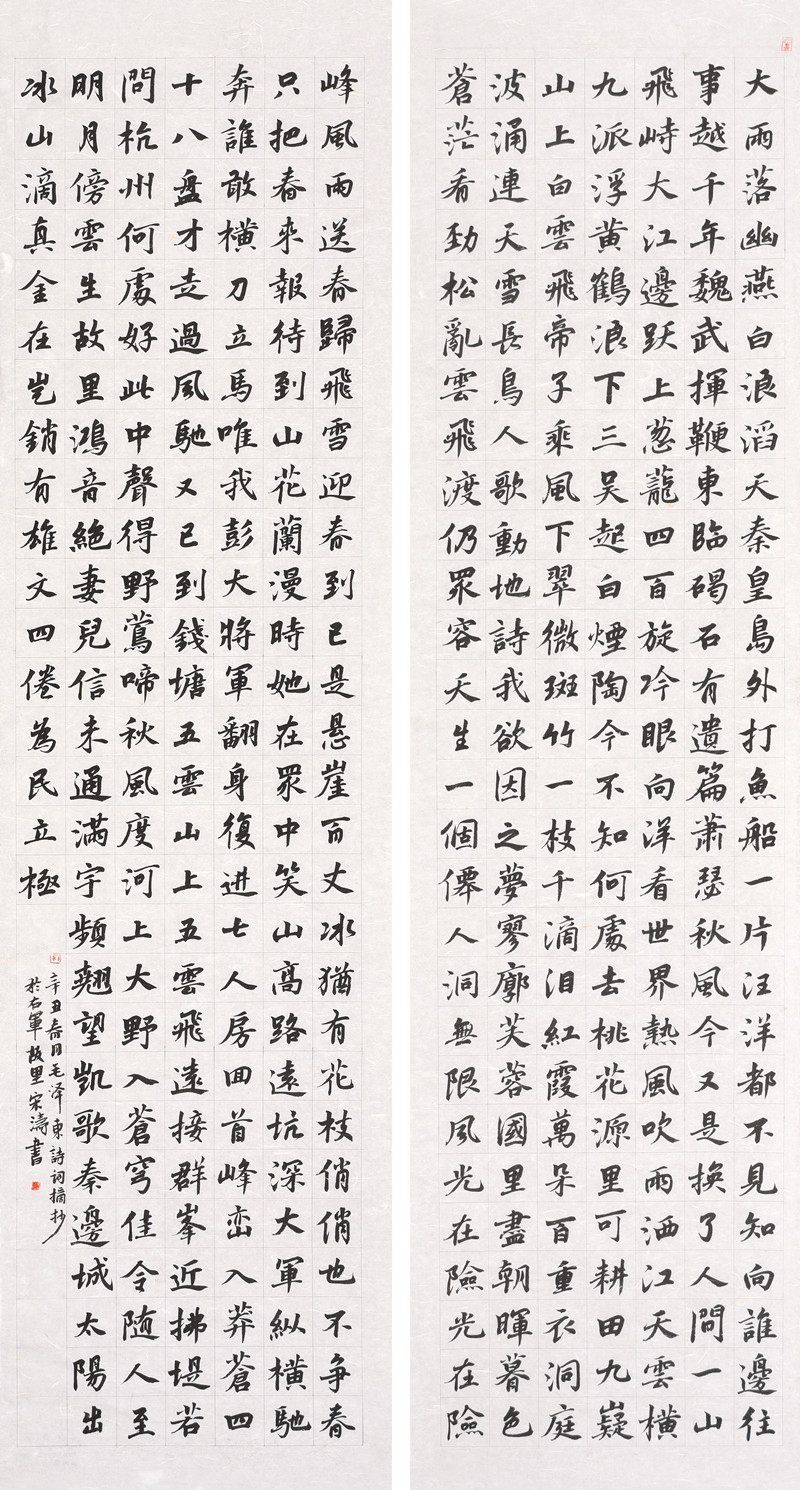 大雨落幽燕白浪滔天秦皇島外打魚船一片汪洋都不見知向誰邊往
事越千年魏武揮鞭東臨碣石有遺篇蕭瑟秋風今又是換了人間一山
飛峙大江邊跃上葱蘢四百旋冷眼向洋看世界熱風吹雨洒江天雲橫
九派浮黄鶴浪下三吴起白煙陶令不知何處去桃花源里可耕田九嶷
山上白雲飛帝子乘風下翠微斑竹一枝千滴泪紅霞萬朵百重衣洞庭
波涌連天雪長島人歌動地詩我欲因之夢寥廓芙蓉國里盡朝暉暮色
蒼茫看勁松亂雲飛渡仍眾容天生一個僊人洞無限風光在險光在險
峰風雨送春歸飛雪迎春到已是悬崖百丈冰猶有花枝俏俏也不争春
只把春來報待到山花蘭漫時她在眾中笑山高路遠坑深大軍縱橫馳
奔誰敢橫刀立馬唯我彭大將軍翻身復进七人房回首峰峦入莽蒼四
十八盘才走過風馳又已到錢塘五雲山上五雲飛遠接群峯近拂堤若
問杭州何處好此中聲得野鶯啼秋風度河上大野入蒼穹佳令随人至
明月傍雲生故里鴻音絕妻兒信未通满宇頻翹望凱歌奏邊城太陽出
冰山滴真金在豈銷有雄文四倦為民立極
辛丑春月毛泽東詩詞摘抄
於右軍故里宋濤書